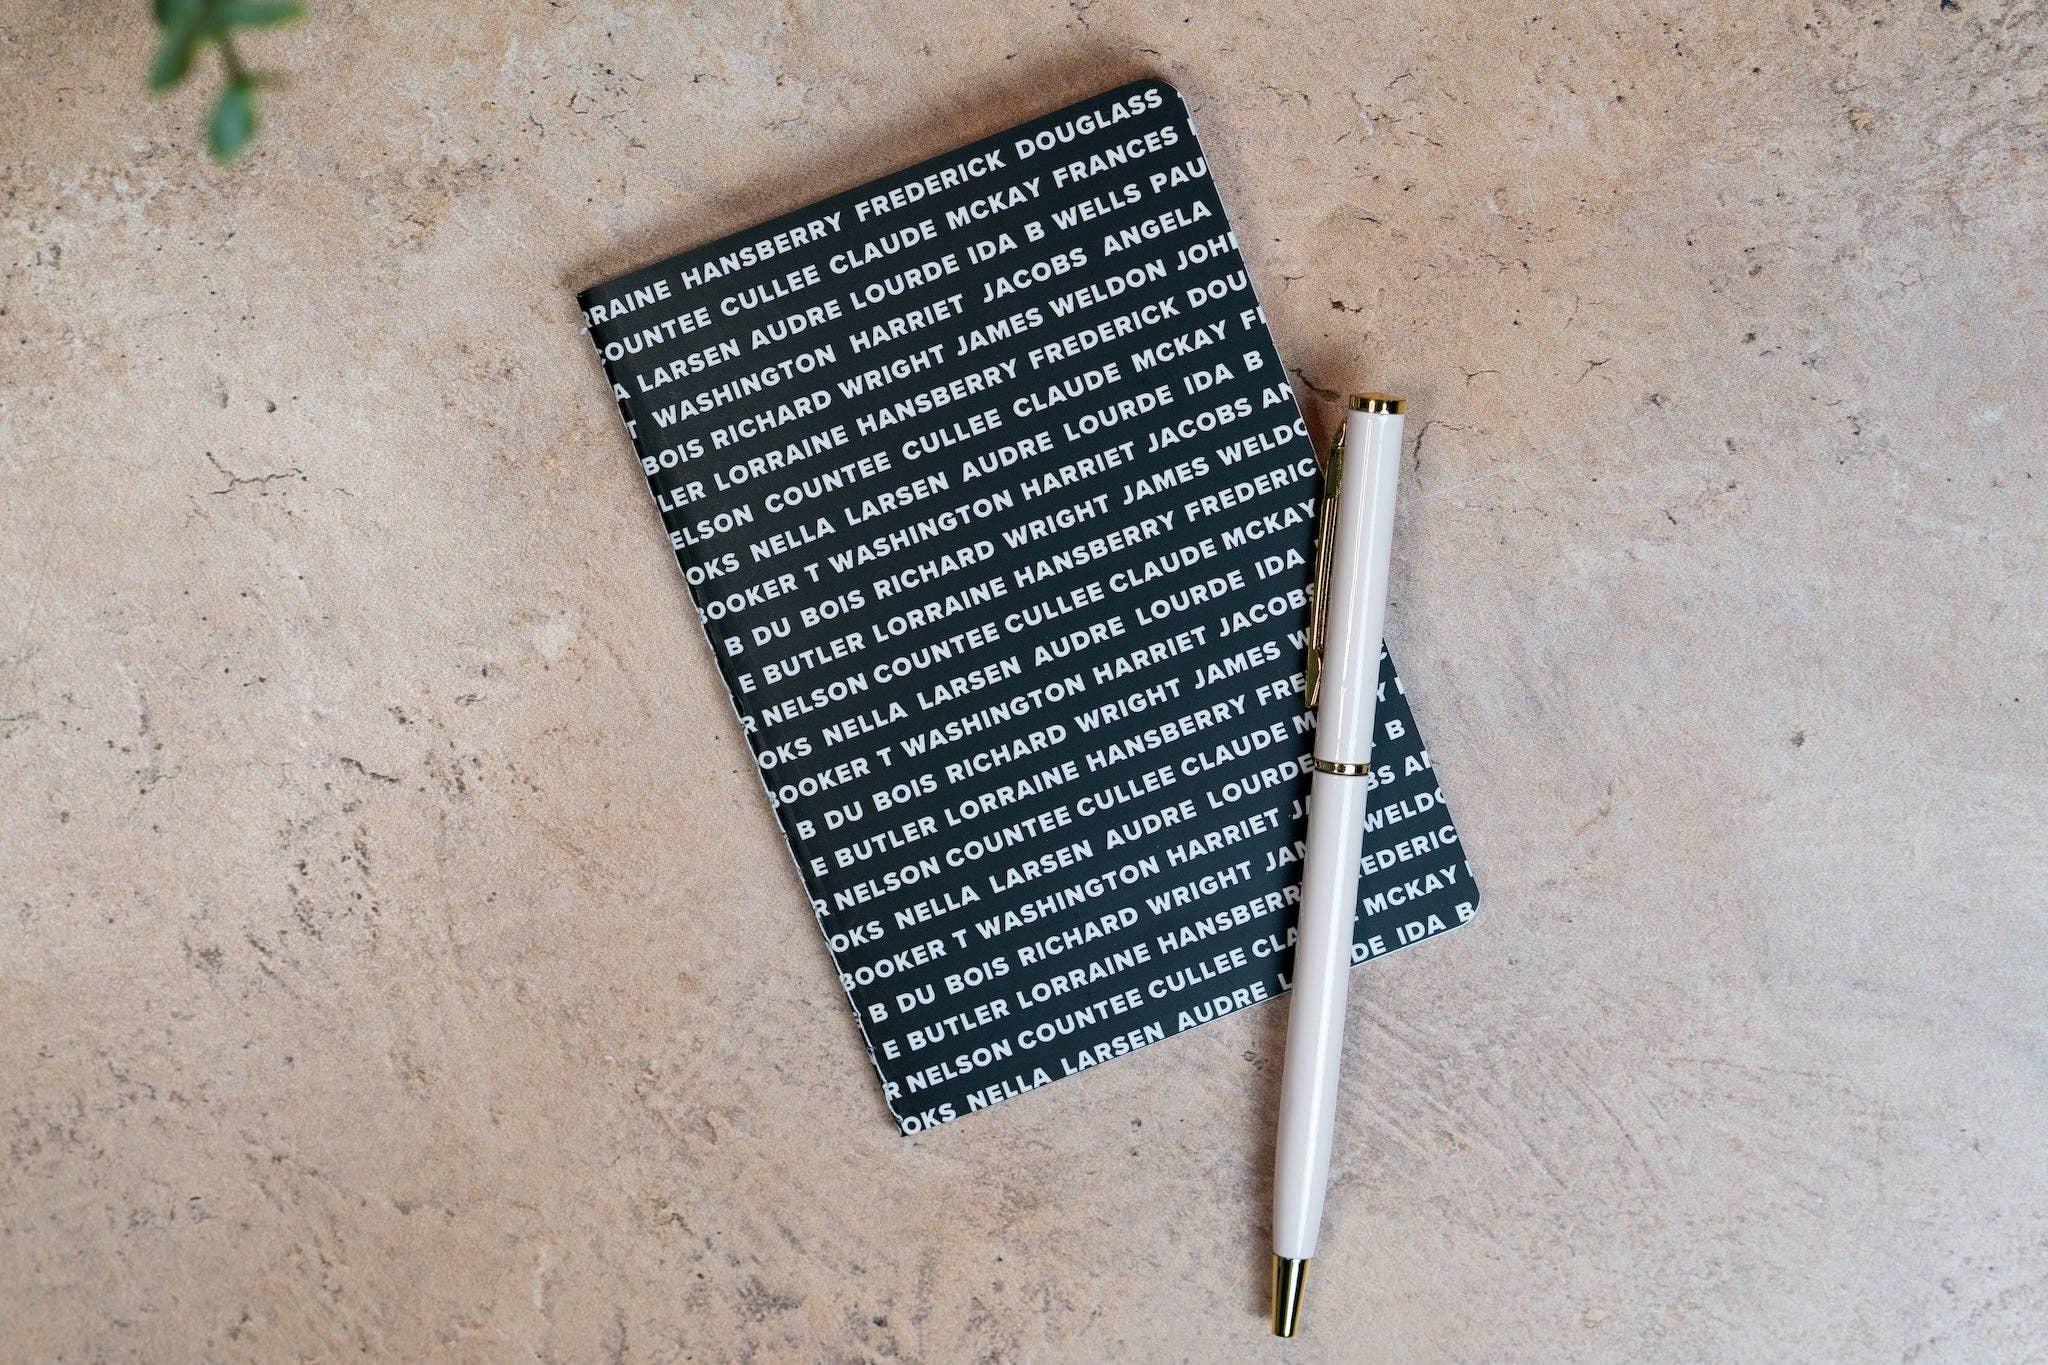 RRAINE HANSBERRY FREDERICK DOUGLASS
COUNTEE CULLEE CLAUDE MCKAY FRANCES
A LARSEN AUDRE LOURDE IDA B WELLS PAU
T WASHINGTON HARRIET JACOBS ANGELA
BOIS RICHARD WRIGHT JAMES WELDON JOH
LER LORRAINE HANSBERRY FREDERICK DOU
ELSON COUNTEE CULLEE CLAUDE MCKAY F
OKS NELLA LARSEN AUDRE LOURDE IDA B
BOOKER T WASHINGTON HARRIET JACOBS AN
B DU BOIS RICHARD WRIGHT JAMES WELDO
E BUTLER LORRAINE HANSBERRY FREDERIC
R NELSON COUNTEE CULLEE CLAUDE MCKAY
OKS NELLA LARSEN AUDRE LOURDE IDA
BOOKER T WASHINGTON HARRIET JACOBS
B DU BOIS RICHARD WRIGHT JAMES W
E BUTLER LORRAINE HANSBERRY FRE
R NELSON COUNTEE CULLEE CLAUDE M Y
OKS NELLA LARSEN AUDRE LOURDE A B
BOOKER T WASHINGTON HARRIET J BS A
B DU BOIS RICHARD WRIGHT JAM WELDO
E BUTLER LORRAINE HANSBERR EDERIC
R NELSON COUNTEE CULLEE CLA E MCKAY
OKS NELLA LARSEN AUDRE L DE IDA B